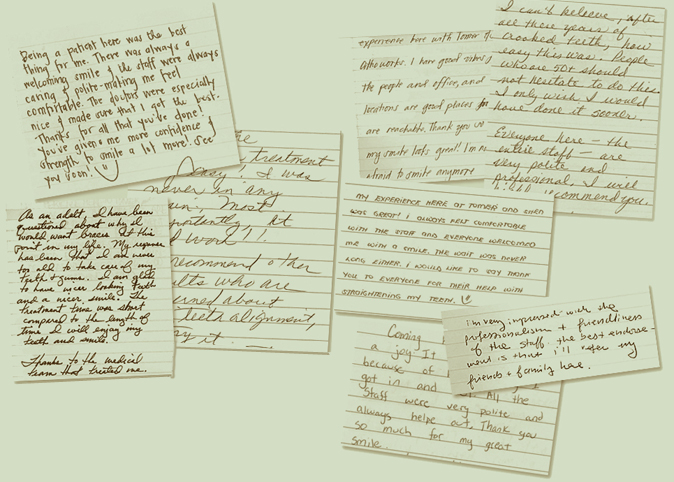 Being a patient here was the best
thing for me. There was always a
welcoming smile & the staff were always
caring & polite-making me feel
comfortable. The doctors were especially
nice & made sure that I got the best.
Thanks for all that you've done!
You've given me more confidence &
strength to smile a lot more! See
you soon!
treatment
easy, I was
never in any
Most
at
work!!
recommend other
who are
about
teeth alignment,
it.
As an adult, I have been
questioned about why I
would want braces at this
point in my life. My response
has been that I am never
too old to take care of my
teeth & gums. I am glad
to have nicer looking teeth
and a nicer smile. The
treatment time was short
compared to the length of
time I will enjoy my
teeth and smile.
Thanks to the medical
team that treated me.
experience here with
I have good
the people and office, and
locations are good places
are reachable. Thank you
my smile looks great! I'm
afraid to smile anymore
I can't believe, after
all these years of
crooked teeth, how
easy this was. People
who are 50 or should
not hesitate to do this.
I only wish I would
have done it sooner.
Everyone here - the
entire staff - are
very polite and
professional. I will
recommend you.
MY EXPERIENCE HERE AT TOWER AND
WAS GREAT! I ALWAYS FELT COMFORTABLE
WITH THE STAFF AND EVERYONE WELCOMED
ME WITH A SMILE. THE WAIT WAS NEVER
LONG EITHER. I WOULD LIKE TO SAY THANK
YOU TO EVERYONE FOR THEIR HELP WITH
STRAIGHTENING MY TEETH.
Coming
a joy! It
because of
got in and All the
staff were very polite and
always helpe out. Thank you
so much for my great
smile.
I'm very impressed with the
professionalism & friendliness
of the staff. the best endorse-
ment is that I'll refer my
friends & family here.